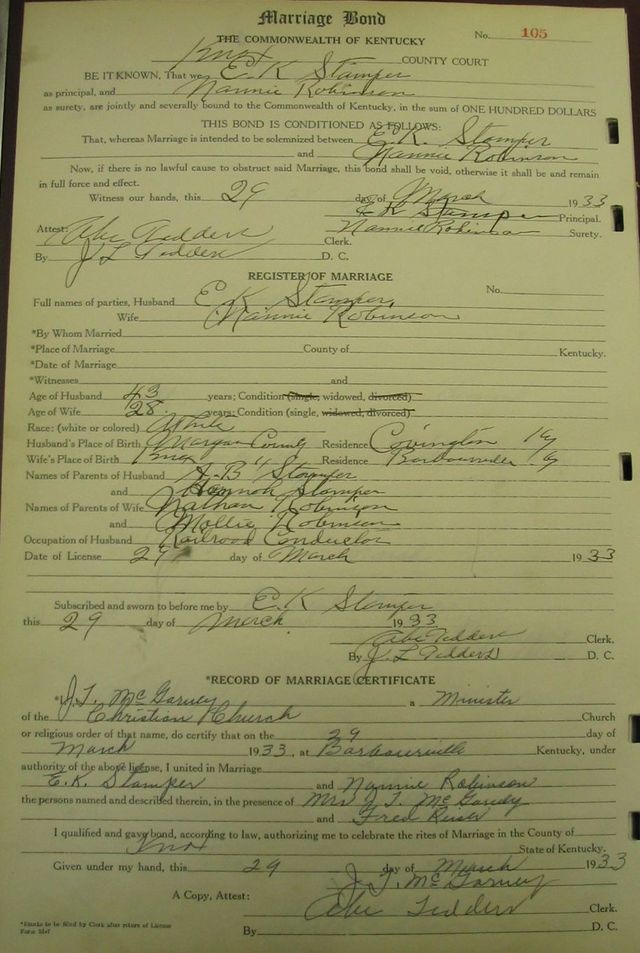 Marriage Bond
THE COMMONWEALTH OF KENTUCKY No. 105
Knox COUNTY COURT
BE IT KNOWN, That we E. K Stamper
as principal, and Nannie Robinson
as surety, are jointly and severally bound to the Commonwealth of Kentucky, in the sum of ONE HUNDRED DOLLARS
THIS BOND IS CONDITIONED AS FOLLOWS:
That, whereas Marriage is intended to be solemnized between E. K. Stamper
and Nannie Robinson
Now, if there is no lawful cause to obstruct said Marriage, this bond shall be void, otherwise it shall be and remain
in full force and effect.
Witness our hands, this 29 day of March 1933
E K Stamper Principal.
Attest: Nannie Robinson Surety.
Abe Tedders Clerk.
By J L Tedders D. C.
REGISTER OF MARRIAGE
Full names of parties, Husband E K Stamper, No.
Wife Nannie Robinson
*By Whom Married
*Place of Marriage County of Kentucky.
*Date of Marriage
*Witnesses and
Age of Husband 43 years; Condition (single, widowed, divorced)
Age of Wife 28. years; Condition (single, widowed, divorced)
Race: (white or colored) White
Husband's Place of Birth Morgan County Residence Covington Ky
Wife's Place of Birth Knox " Residence Barbourville Ky
Names of Parents of Husband B Stamper
and Stamper
Names of Parents of Wife Nathan Robinson
and Mollie Robinson
Occupation of Husband Railroad Conductor
Date of License 29 day of March 1933
Subscribed and sworn to before me by E. K Stamper
this 29 day of March 1933
Abe Tedders Clerk.
By J L Tedders D. C.
*RECORD OF MARRIAGE CERTIFICATE
*I, J. T. McGarvey a Minister
of the Christian Church Church
or religious order of that name, do certify that on the 29 day of
March 1933, at Barbourville Kentucky, under
authority of the above license, I united in Marriage
E. K. Stamper and Nannie Robinson
the persons named and described therein, in the presence of Mrs J. T. McGarvey
and Fred
I qualified and gave bond, according to law, authorizing me to celebrate the rites of Marriage in the County of
Knox State of Kentucky.
Given under my hand, this 29 day of March 1933
J. T. McGarvey
A Copy, Attest: Abe Tedders Clerk.
By D. C.
*Blanks to be filled by Clerk after return of License